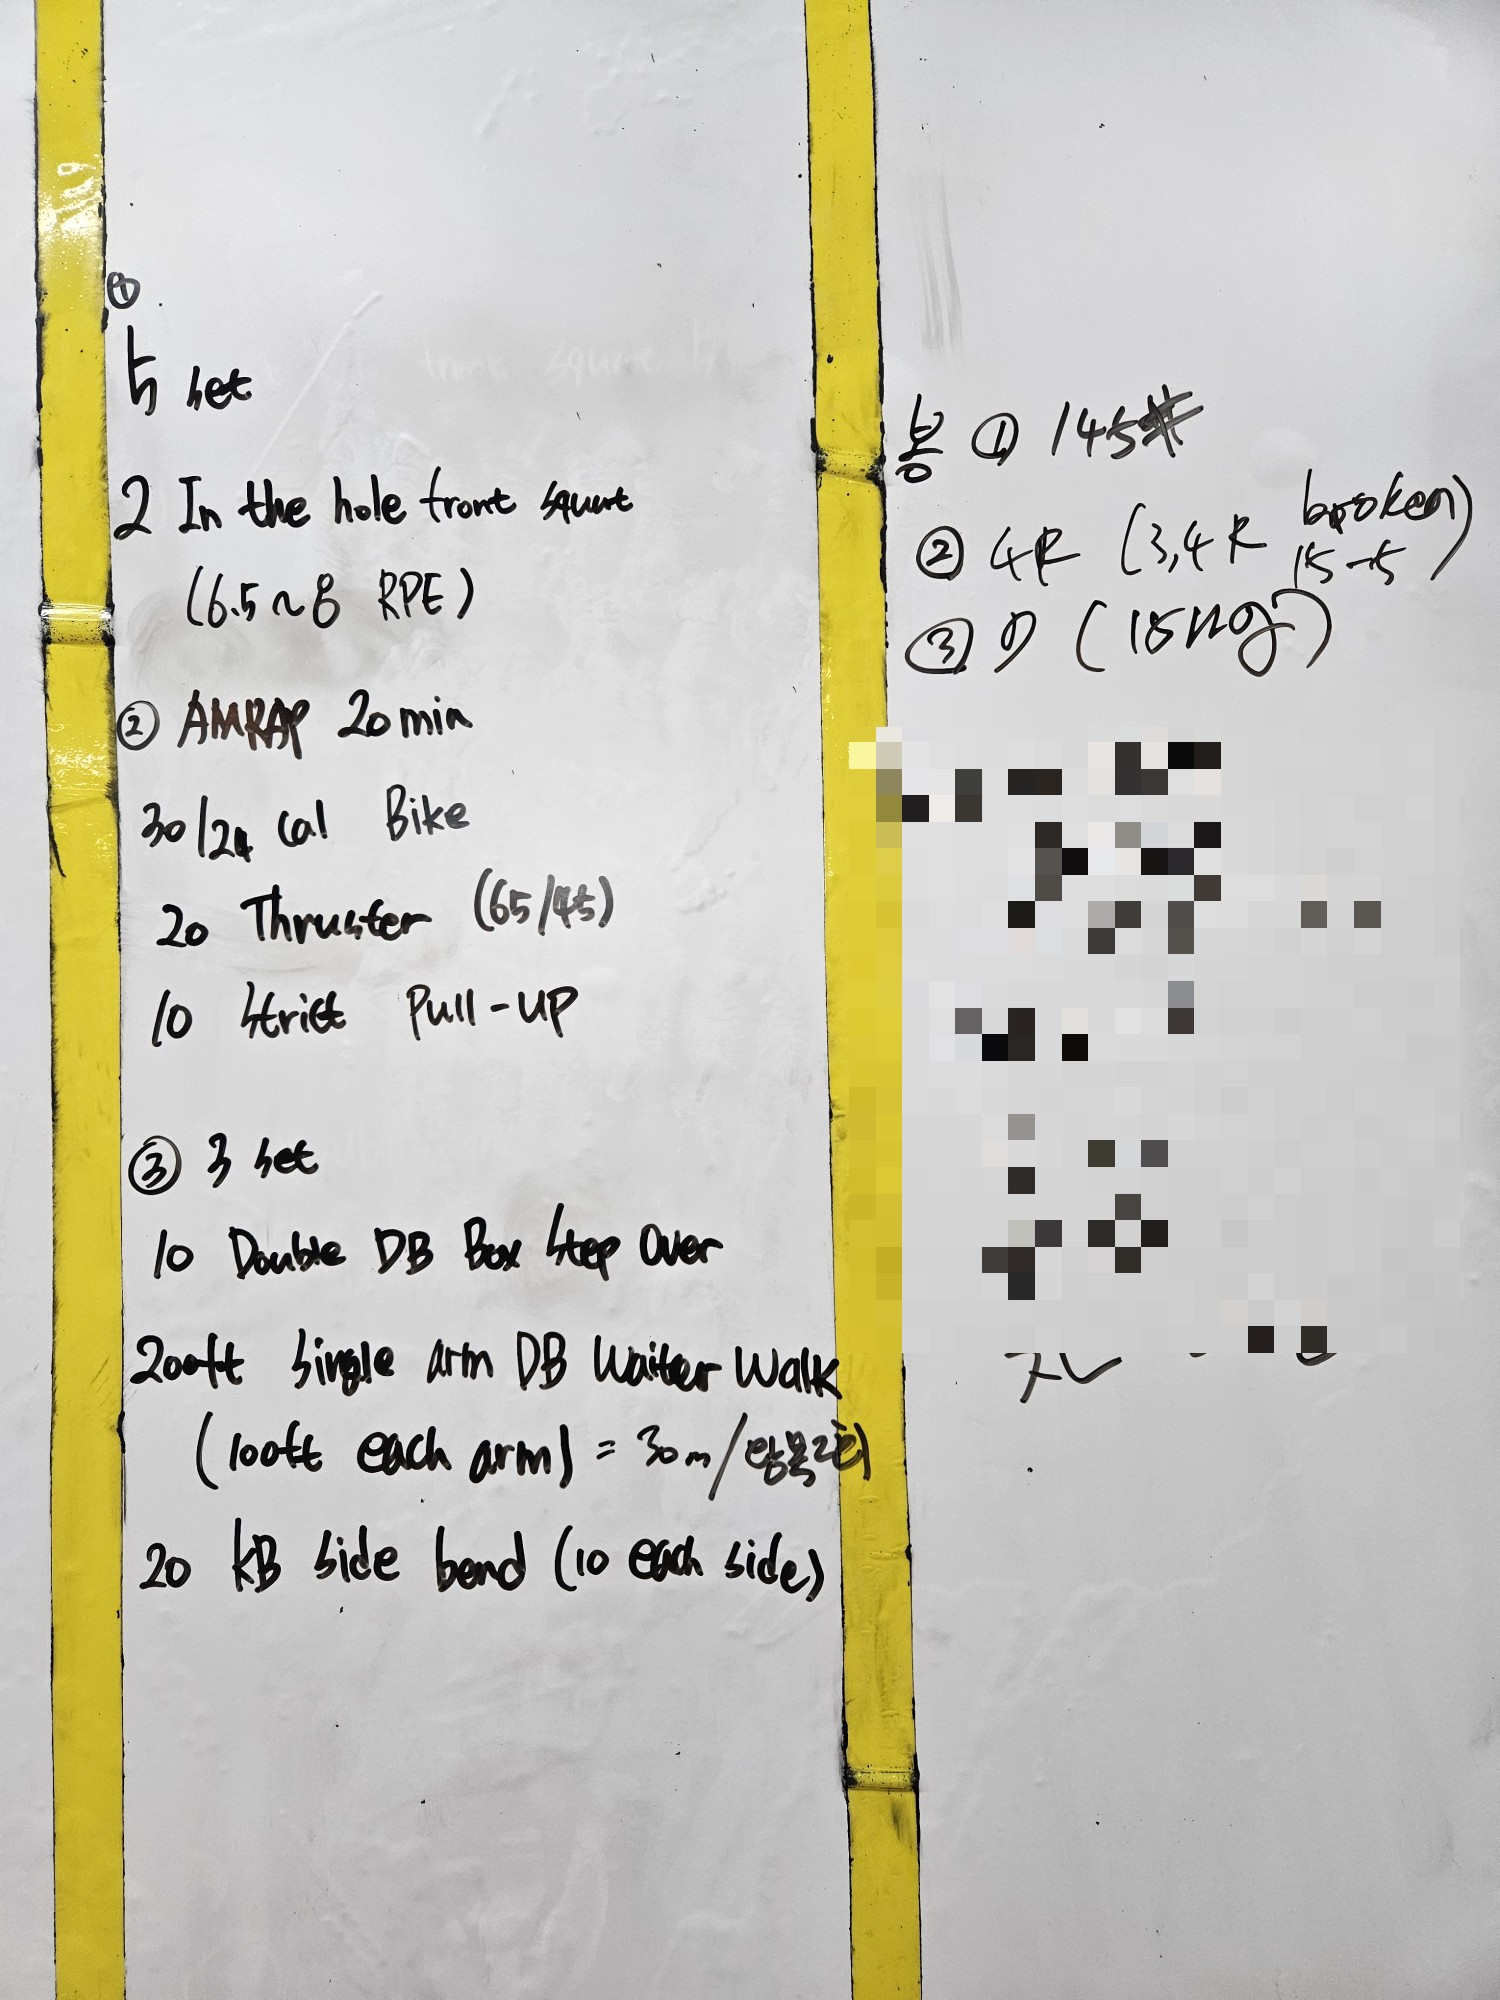 ①
5 set
2 In the hole front squat
(6.5~8 RPE)
② AMRAP 20min
30/24 Cal Bike
20 Thruster (65/45)
10 Strict Pull-up
③ 3 set
10 Double DB Box Step Over
200ft Single arm DB Waiter Walk
(100ft each arm) = 30m/왕복2회)
20 KB Side bend (10 each side)
봉 ① 145#
② 4R (3,4R broken 15-5)
③ (15kg)